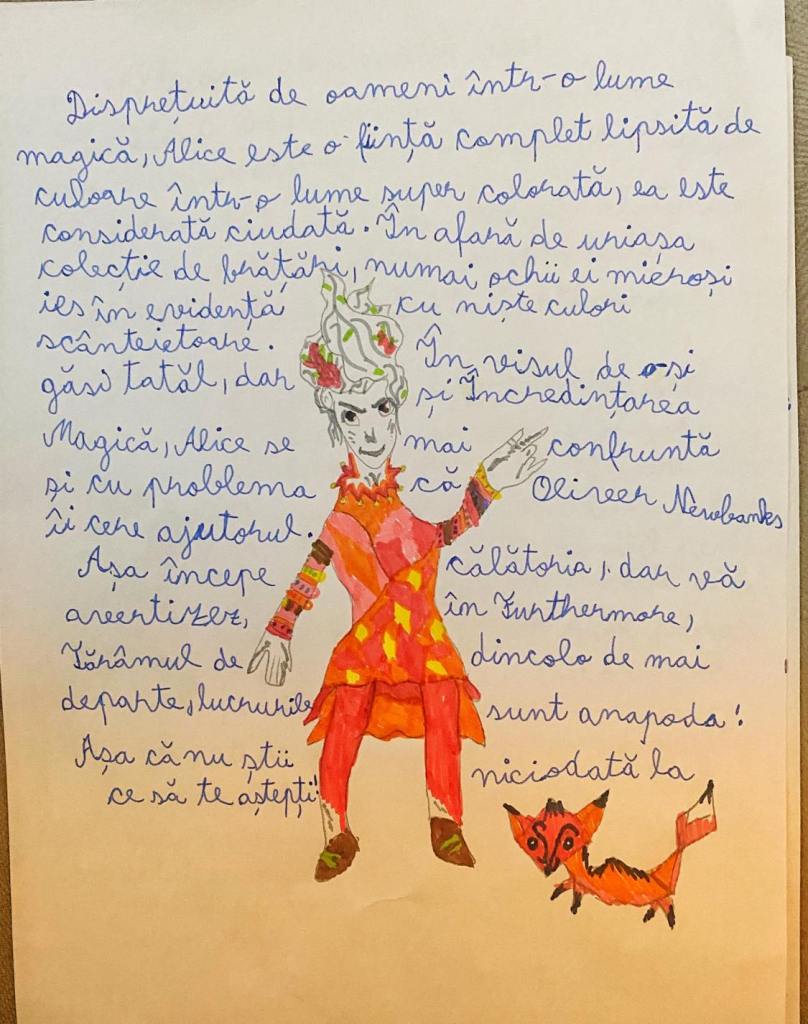 Disprețuită de oameni într-o lume
magică, Alice este o ființă complet lipsită de
culoare într-o lume super colorată, ea este
considerată ciudată. În afară de uriașa
colecție de brățări, numai ochii ei mieroși
ies în evidență cu niște culori
scânteietoare. În visul de a-și
găsi tatăl, dar și Încredințarea
Magică, Alice se mai confruntă
și cu problema că Oliver Newbanks
îi cere ajutorul.
Așa începe călătoria, dar vă
avertizez, în Furthermore,
Tărâmul de dincolo de mai
departe, lucrurile sunt anapoda!
Așa că nu știi niciodată la
ce să te aștepți!